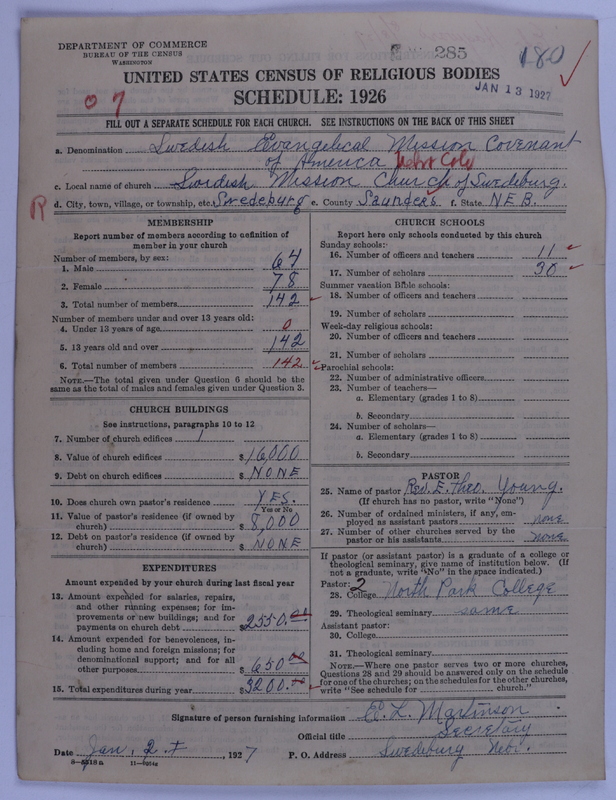 DEPARTMENT OF COMMERCE
BUREAU OF THE CENSUS
WASHINGTON
285
180
UNITED STATES CENSUS OF RELIGIOUS BODIES
JAN 13 1927
SCHEDULE: 1926
07
FILL OUT A SEPARATE SCHEDULE FOR EACH CHURCH. SEE INSTRUCTIONS ON THE BACK OF THIS SHEET
a. Denomination Swedish Evangelical Mission Covenant
of America
c. Local name of church Swedish Mission Church of Swedeburg.
R
d. City, town, village, or township, etc. Swedeburg e. County Saunders f. State NEB.
MEMBERSHIP
Report number of members according to definition of
member in your church
Number of members, by sex:
1. Male 64
2. Female 78
3. Total number of members 142
Number of members under and over 13 years old:
4. Under 13 years of age 0
5. 13 years old and over 142
6. Total number of members 142
NOTE.—The total given under Question 6 should be the
same as the total of males and females given under Question 3.
CHURCH BUILDINGS
See instructions, paragraphs 10 to 12
7. Number of church edifices 1
8. Value of church edifices $16,000
9. Debt on church edifices $NONE
10. Does church own pastor's residence YES.
Yes or No
11. Value of pastor's residence (if owned by
church) $8,000
12. Debt on pastor's residence (if owned by
church) $NONE
EXPENDITURES
Amount expended by your church during last fiscal year
13. Amount expended for salaries, repairs,
and other running expenses; for im-
provements or new buildings; and for
payments on church debt $2550.00
14. Amount expended for benevolences, in-
cluding home and foreign missions; for
denominational support; and for all
other purposes $650.00
15. Total expenditures during year $3200.00
CHURCH SCHOOLS
Report here only schools conducted by this church
Sunday schools:
16. Number of officers and teachers 11
17. Number of scholars 30
Summer vacation Bible schools:
18. Number of officers and teachers
19. Number of scholars
Week-day religious schools:
20. Number of officers and teachers
21. Number of scholars
Parochial schools:
22. Number of administrative officers
23. Number of teachers—
a. Elementary (grades 1 to 8)
b. Secondary
24. Number of scholars—
a. Elementary (grades 1 to 8)
b. Secondary
PASTOR
25. Name of pastor Rev. E. Theo. Young.
(If church has no pastor, write "None")
26. Number of ordained ministers, if any, em-
ployed as assistant pastors none
27. Number of other churches served by the
pastor or his assistants none
If pastor (or assistant pastor) is a graduate of a college or
theological seminary, give name of institution below. (If
not a graduate, write "No" in the space indicated.)
Pastor: 2
28. College North Park College
29. Theological seminary same
Assistant pastor:
30. College
31. Theological seminary
NOTE.—Where one pastor serves two or more churches,
Questions 28 and 29 should be answered only on the schedule
for one of the churches; on the schedules for the other churches,
write "See schedule for church."
Signature of person furnishing information E. L. Martinson
Official title Secretary
Date Jan. 2, 1927 P. O. Address Swedeburg Nebr.